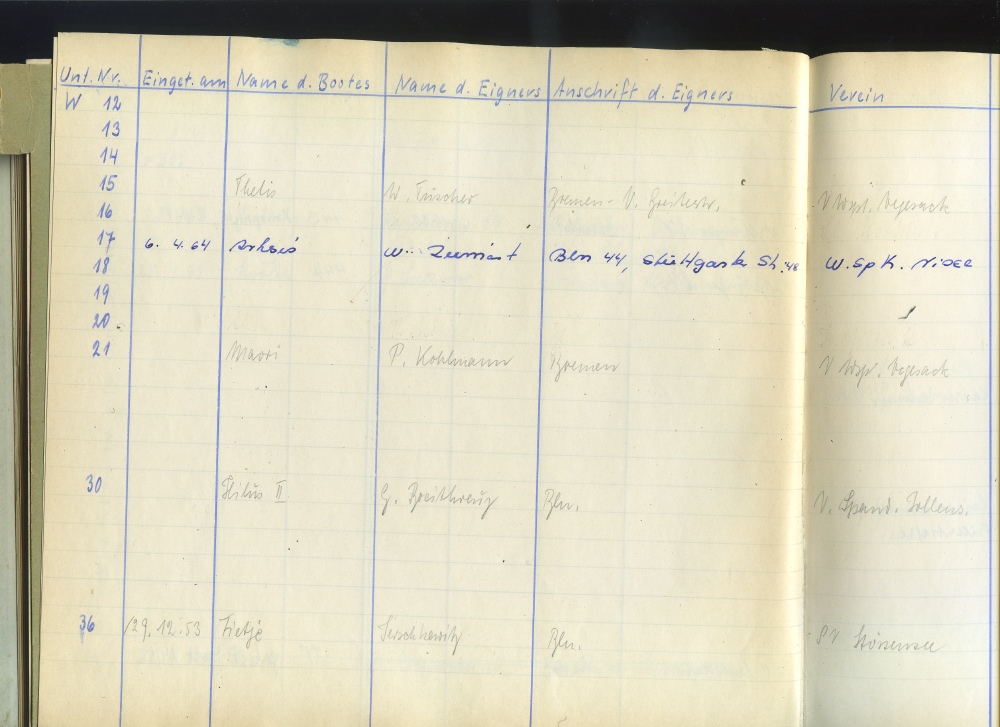 Unt. Nr. Einget. am Name d. Bootes Name d. Eigners Anschrift d. Eigners Verein
W 12
13
14
15 Thetis W. Tuscher Bremen - V. Breitestr. V Wspt. Vegesack
16
17 6. 4. 64 W. Bln 44, Stuttgarter Str. 48 W. Sp K.
18
19
20
21 Maori P. Kohlmann Bremen V Wsp. Vegesack
30 II G. Breitkreuz Bln. V. Spand. Jollens.
36 29.12.53 Fietje Bln. SV Stössensee